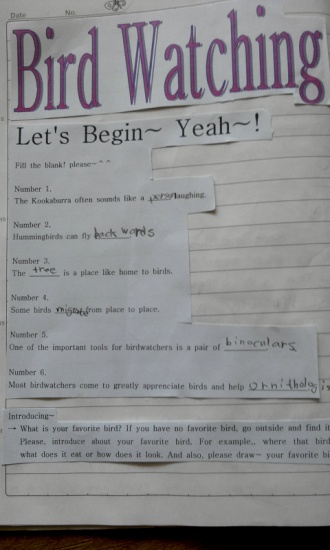 Date No.
Bird Watching
Let's Begin~ Yeah~!
Fill the blank! please~^^
Number 1.
The Kookaburra often sounds like a person laughing.
Number 2.
Hummingbirds can fly back words
Number 3.
The tree is a place like home to birds.
Number 4.
Some birds migrate from place to place.
Number 5.
One of the important tools for birdwatchers is a pair of binoculars
Number 6.
Most birdwatchers come to greatly apprenciate birds and help ornithologi
Introducing~
→ What is your favorite bird? If you have no favorite bird, go outside and find it
Please, introduce about your favorite bird. For example,, where that bird
what does it eat or how does it look. And also, please draw~ your favorite bi